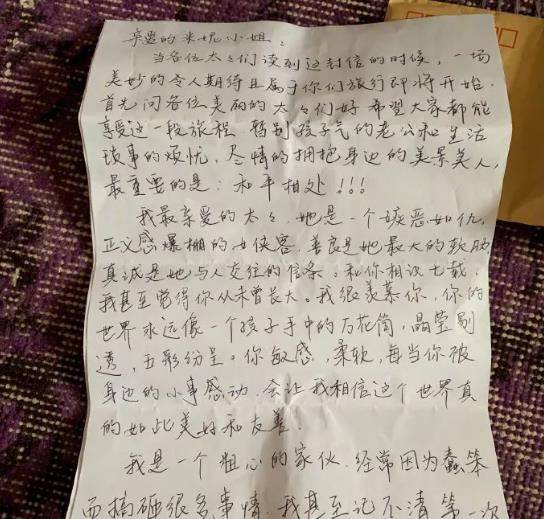 亲爱的米妮小姐：
当各位太太们读到这封信的时候，一场
美妙的令人期待且属于你们旅行即将开始.
首先问各位美丽的太太们好 希望大家都能
享受这一段旅程 暂别孩子气的老公和生活
琐事的烦忧，尽情的拥抱身边的美景美人，
最重要的是：和平相处！！！
我最亲爱的太太，她是一个嫉恶如仇，
正义感爆棚的女侠客 善良是她最大的软肋
真诚是她与人交往的信条. 和你相识七载，
我甚至觉得你从未曾长大。我很羡慕你，你的
世界永远像一个孩子手中的万花筒，晶莹剔
透，五彩纷呈。你敏感，柔软，每当你被
身边的小事感动，会让我相信这个世界真
的如此美好和友善.
我是一个粗心的家伙，经常因为蠢笨
而搞砸很多事情，我甚至记不清第一次